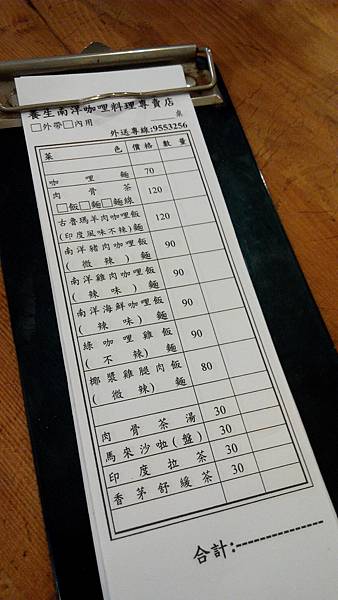 養生南洋咖哩料理專賣店
□外帶□內用 桌
外送專線:9553256
菜 色 價格 數量
咖哩麵 70
肉骨茶 120
□飯□麵□麵線
古魯瑪羊肉咖哩飯 120
(印度風味不辣)麵
南洋豬肉咖哩飯 90
(微辣) 麵
南洋雞肉咖哩飯 90
(辣味) 麵
南洋海鮮咖哩飯 90
(辣味) 麵
綠咖哩雞飯 90
(不辣) 麵
椰漿雞腿肉飯 80
(微辣) 麵
肉骨茶湯 30
馬來沙啦(盤) 30
印度拉茶 30
香茅舒緩茶 30
合計:--------------